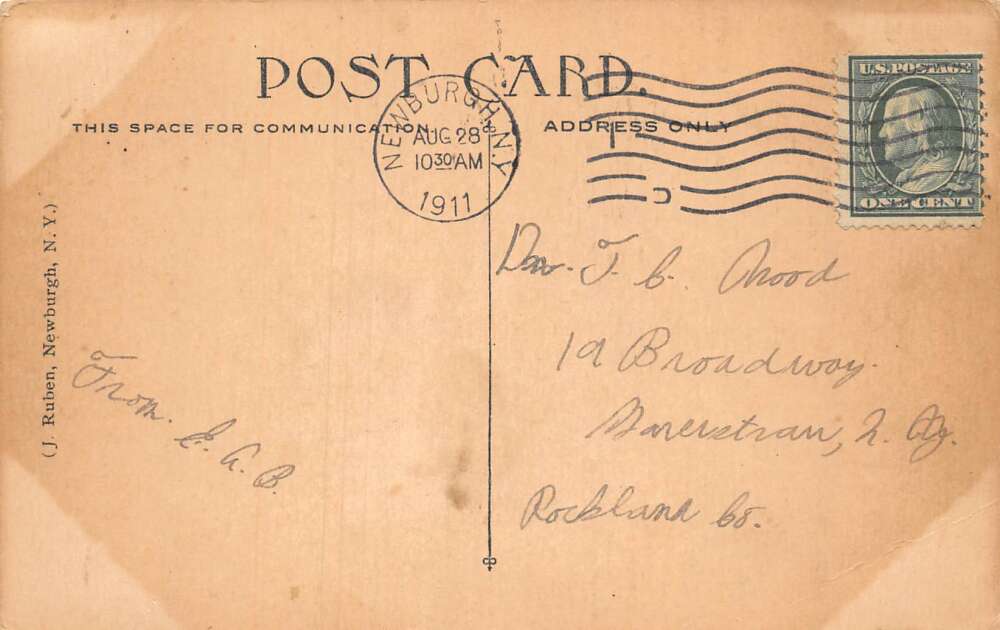 POST CARD.
THIS SPACE FOR COMMUNICATION
ADDRESS ONLY
NEWBURGH, N.Y.
AUG 28
10 30 AM
1911
U.S. POSTAGE
ONE CENT
(J. Ruben, Newburgh, N. Y.)
From. E. A. B.
T. C. Wood
19 Broadway.
Haverstraw, N. Y.
Rockland Co.